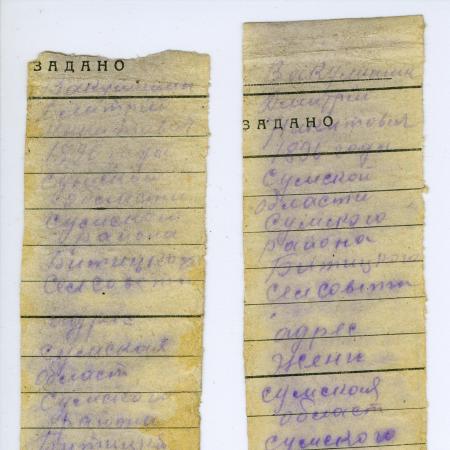 ЗАДАНО
Вакуленко
Дмитрий
1896 года
Сумской
области
Сумского
района
Битицкого
Сельсовета
адрес
сумская
област
Сумского
района
Битицкий
Вакуленко
Дмитрий
ЗАДАНО
1896 года
Сумской
области
Сумского
района
Битицкого
сельсовета
адрес
жены
сумская
област
сумского